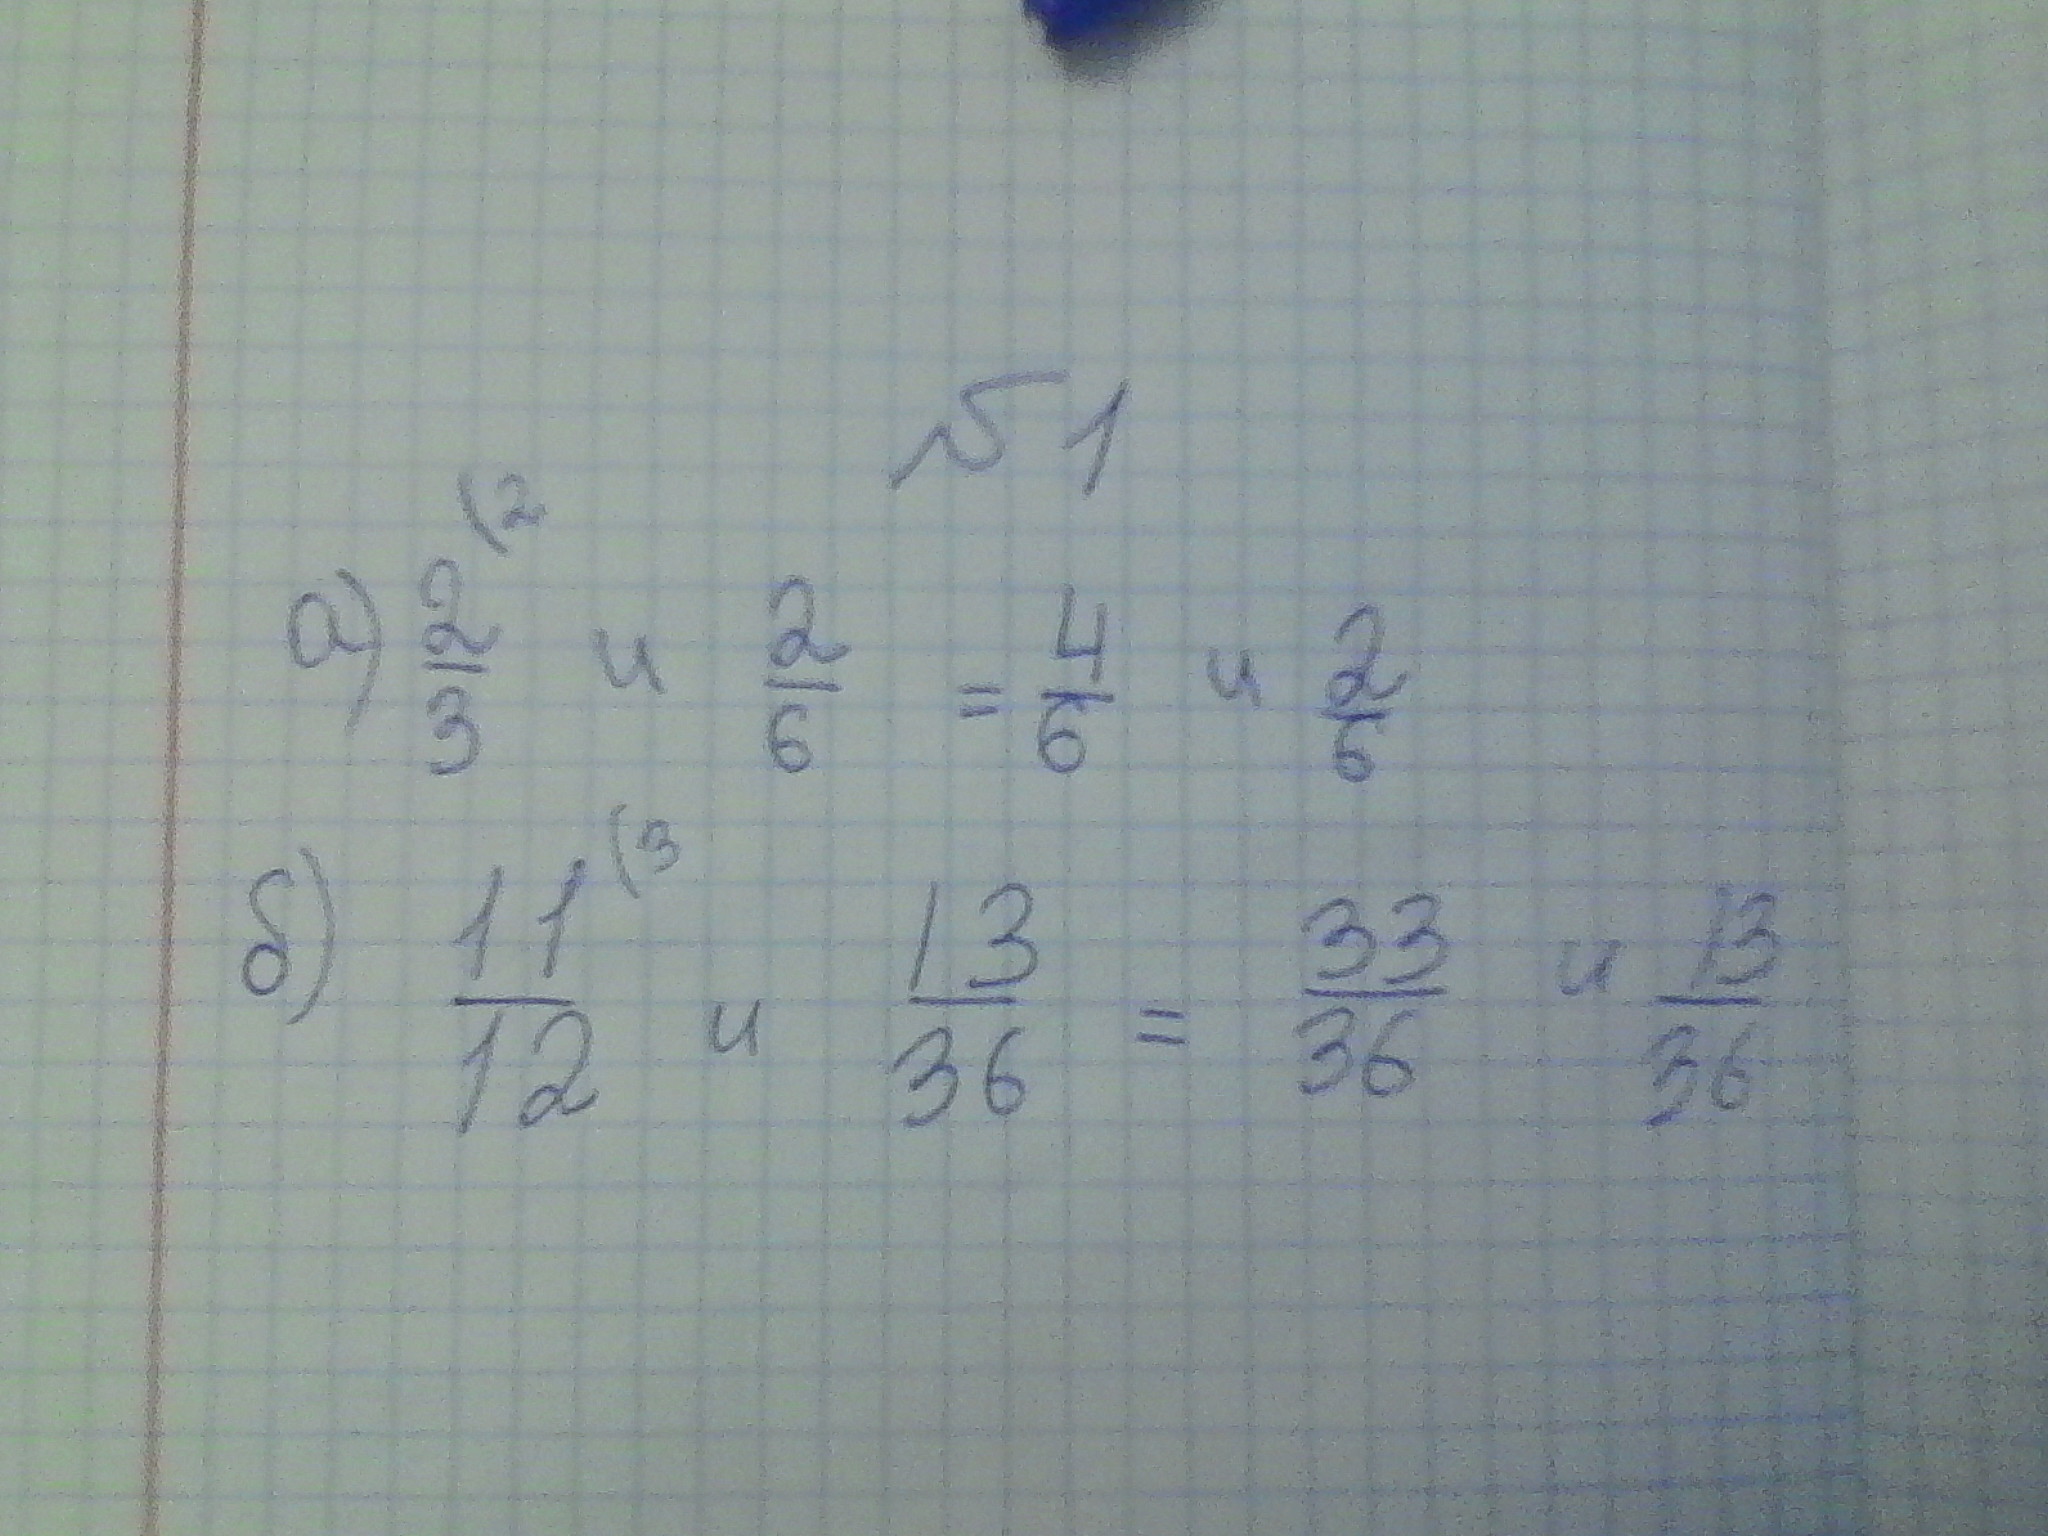 №1
а) 2/3 (2 и 2/6 = 4/6 и 2/6
б) 11/12 (3 и 13/36 = 33/36 и 13/36